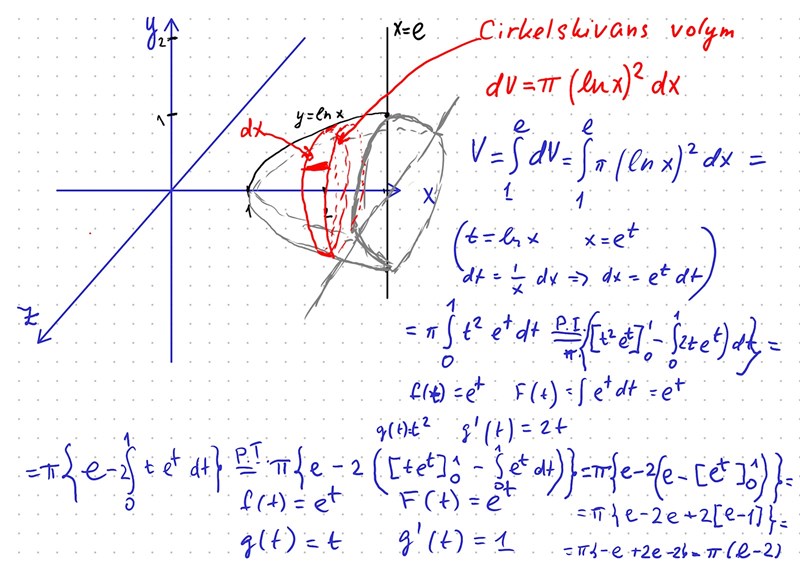 y
2
1
x=e
y=ln x
dx
1
2
x
z
Cirkelskivans volym
dV=π(ln x)² dx
V=∫₁ᵉ dV=∫₁ᵉ π(ln x)² dx =
(t=ln x x=eᵗ
dt=1/x dx ⇒ dx=eᵗ dt)
=π∫₀¹ t² eᵗ dt P.I.= π{[t²eᵗ]₀¹-∫₀¹ 2teᵗ)dt}=
f(t)=eᵗ F(t)=∫eᵗdt=eᵗ
g(t)=t² g'(t)=2t
=π{e-2∫₀¹ t eᵗ dt} P.I.= π{e-2([teᵗ]₀¹-∫₀¹eᵗ dt)}=π{e-2(e-[eᵗ]₀¹)}=
f(t)=eᵗ F(t)=eᵗ
=π{e-2e+2[e-1]}=
g(t)=t g'(t)=1
=π{-e+2e-2}=π(e-2)